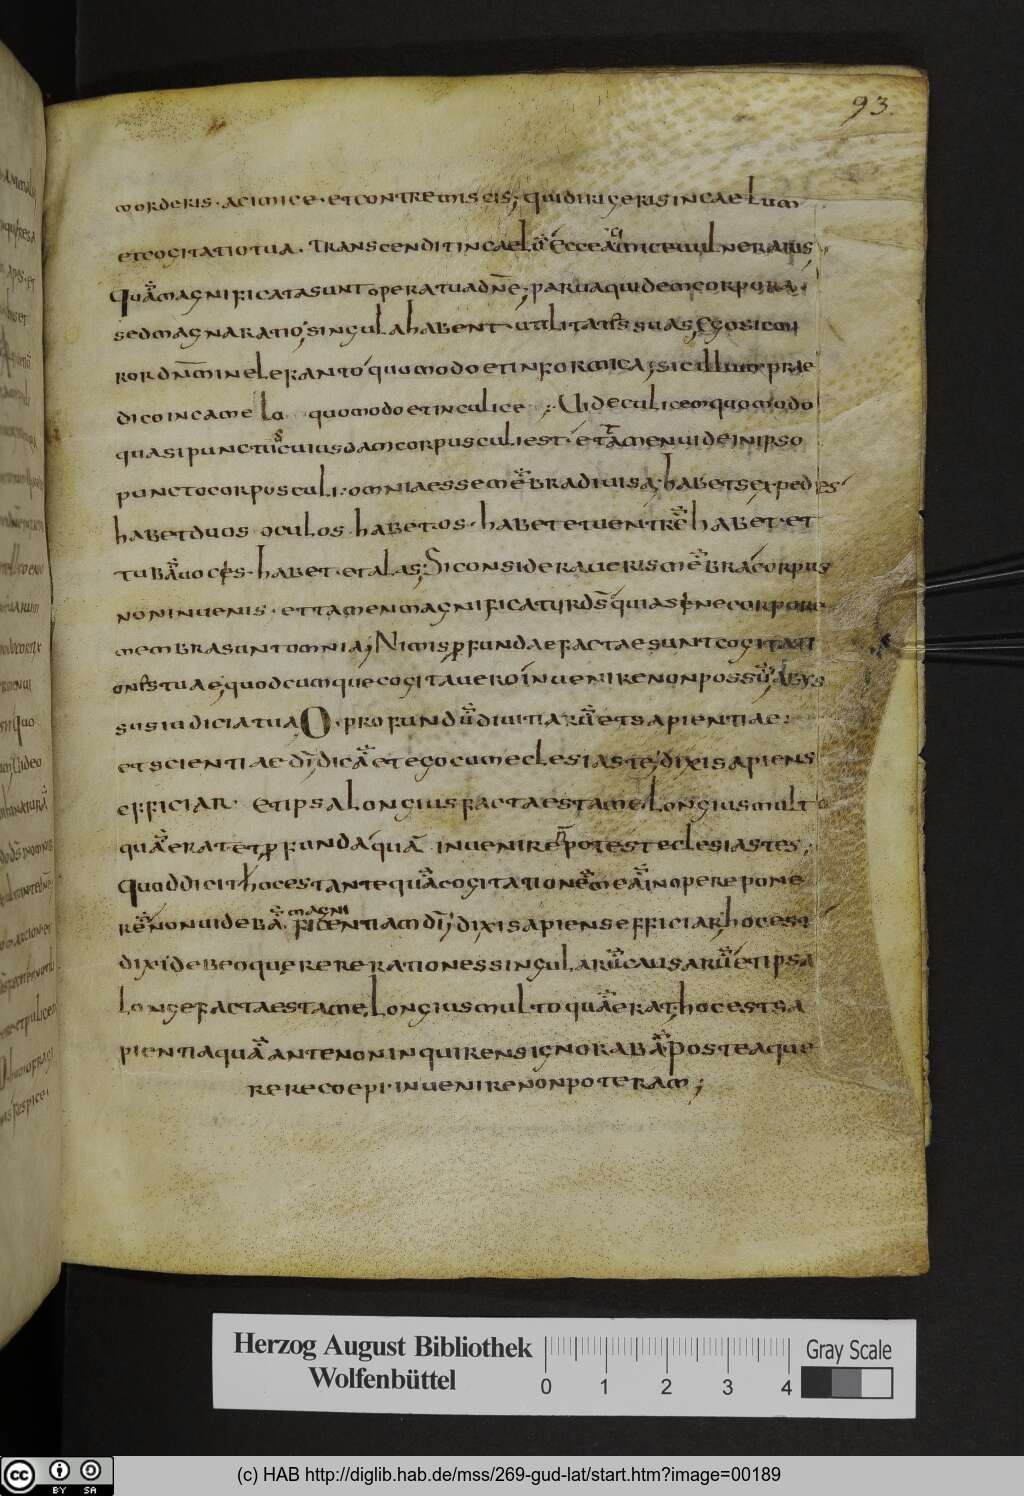 93.
morderis · a cimice · et contremiscis; qui dirigeris in caelum
et cogitatio tua · transcendit in caelū ecce a cimice vulneraris;
Quā magnificata sunt opera tua dn̄e; parva quidem corpora ·
sed magna ratio; singula habent utilitates suas, Ego sic mi
ror dn̄m in elefanto quomodo et in formica; sic illum prae
dico in camelo quomodo et in culice ;· Videculicem quomodo
quasi punctus cuiusdam corpusculi est · et tamen vide in ipso
puncto corpusculi · omnia esse mēbra divisa; habet sex pedes
habet duos oculos · habet os · habet et ventrē habet · et
tubā vocis · habet · et alas; Si consideraveris mēbra corpus
non invenis · et tamen magnificatur ds̄ quia sine corpore
membra sunt omnia; Nimis ꝑfundae factae sunt cogitati
ones tuae; quodcumque cogitavero invenire non possū, Abys
sus iudicia tua O · profundū divitiarū et sapientiae ·
et scientiae dī; dicā et ego cum eclesiaste, dixi sapiens
efficiar · Et ipsa longius facta est a me, Longius multo
quā erat et ꝑfunda quā invenire potest eclesiastes;
Quod dicit hoc est antequā cogitationē meā in opere pone
rē non videbā magni
ficentiam dī; dixi sapiens efficiar hoc est
dixi debeo querere rationes singularū causarū et ipsa
longe facta est a me, longius multo quā erat; hoc est sa
pientia quā ante non inquirens ignorabā Postea que
rere coepi · invenire non poteram ;
Herzog August Bibliothek
Wolfenbüttel
0 1 2 3 4
Gray Scale
(c) HAB http://diglib.hab.de/mss/269-gud-lat/start.htm?image=00189
cc
BY SA